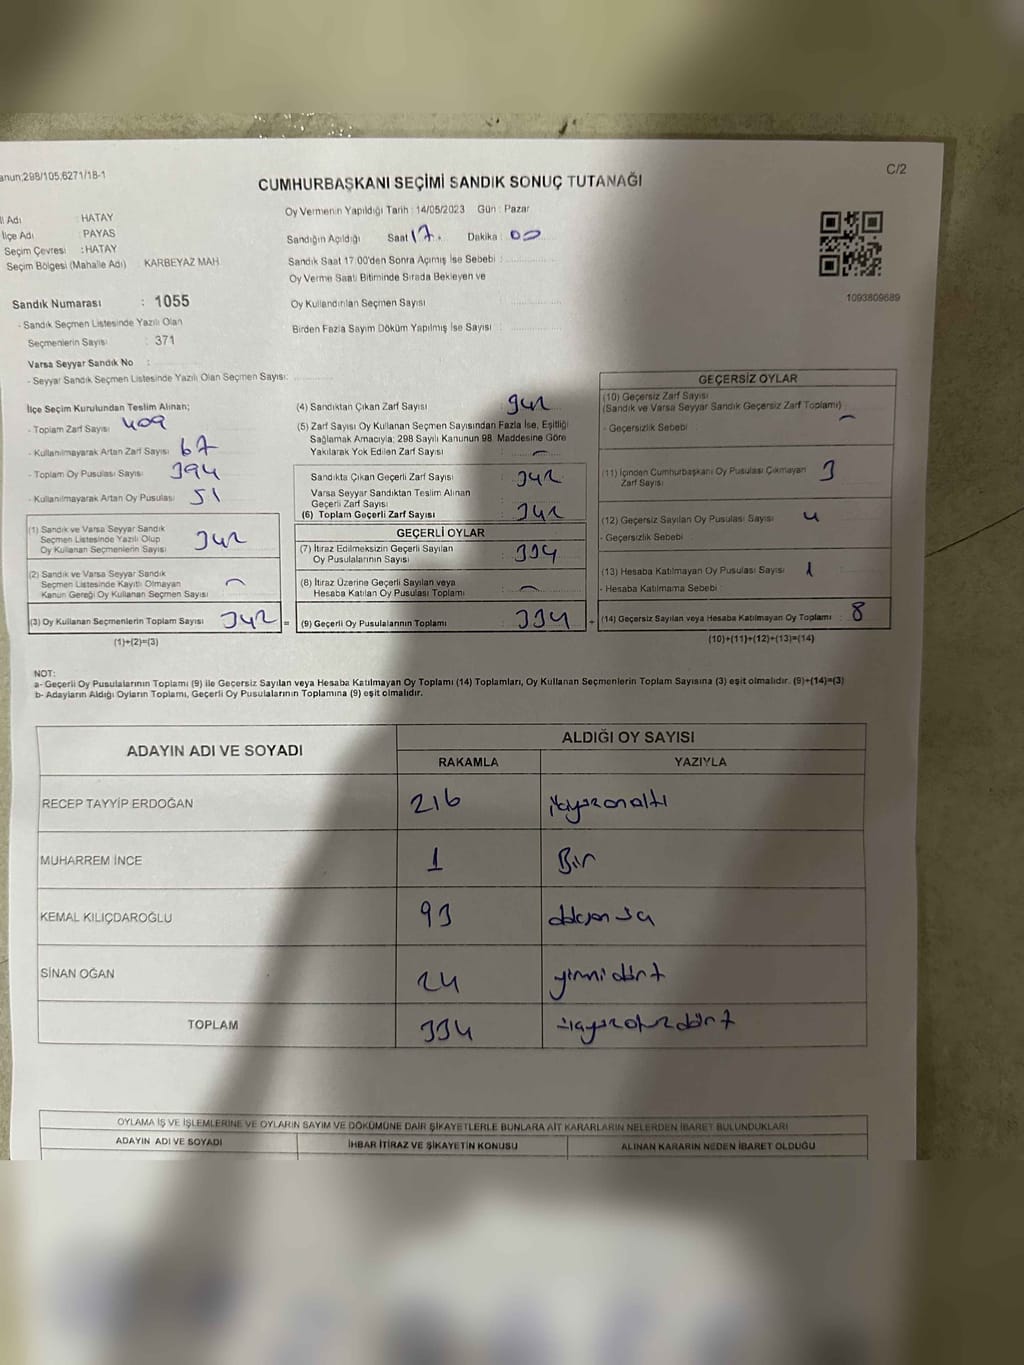 anun;298/105;6271/18-1
C/2
CUMHURBAŞKANI SEÇİMİ SANDIK SONUÇ TUTANAĞI
Oy Vermenin Yapıldığı Tarih : 14/05/2023 Gün : Pazar
Sandığın Açıldığı Saat 17. Dakika : 00
Sandık Saat 17.00'den Sonra Açımış İse Sebebi :
Oy Verme Saati Bitiminde Sırada Bekleyen ve
Oy Kullandırılan Seçmen Sayısı
Birden Fazla Sayım Döküm Yapılmış İse Sayısı :
1093809689
İl Adı : HATAY
İlçe Adı : PAYAS
Seçim Çevresi : HATAY
Seçim Bölgesi (Mahalle Adı) KARBEYAZ MAH.
Sandık Numarası : 1055
- Sandık Seçmen Listesinde Yazılı Olan
Seçmenlerin Sayısı : 371
Varsa Seyyar Sandık No :
- Seyyar Sandık Seçmen Listesinde Yazılı Olan Seçmen Sayısı:
İlçe Seçim Kurulundan Teslim Alınan;
- Toplam Zarf Sayısı : 409
- Kullanılmayarak Artan Zarf Sayısı : 67
- Toplam Oy Pusulası Sayısı : 394
- Kullanılmayarak Artan Oy Pusulası : 51
(1) Sandık ve Varsa Seyyar Sandık
Seçmen Listesinde Yazılı Olup
Oy Kullanan Seçmenlerin Sayısı 342
(2) Sandık ve Varsa Seyyar Sandık
Seçmen Listesinde Kayıtlı Olmayan
Kanun Gereği Oy Kullanan Seçmen Sayısı
(3) Oy Kullanan Seçmenlerin Toplam Sayısı 342 =
(1)+(2)=(3)
(4) Sandıktan Çıkan Zarf Sayısı : 342
(5) Zarf Sayısı Oy Kullanan Seçmen Sayısından Fazla İse, Eşitliği
Sağlamak Amacıyla, 298 Sayılı Kanunun 98. Maddesine Göre
Yakılarak Yok Edilen Zarf Sayısı
Sandıkta Çıkan Geçerli Zarf Sayısı : 342
Varsa Seyyar Sandıktan Teslim Alınan
Geçerli Zarf Sayısı
(6) Toplam Geçerli Zarf Sayısı : 342
GEÇERLİ OYLAR
(7) İtiraz Edilmeksizin Geçerli Sayılan
Oy Pusulalarının Sayısı : 334
(8) İtiraz Üzerine Geçerli Sayılan veya
Hesaba Katılan Oy Pusulası Toplamı
(9) Geçerli Oy Pusulalarının Toplamı : 334 +
GEÇERSİZ OYLAR
(10) Geçersiz Zarf Sayısı
(Sandık ve Varsa Seyyar Sandık Geçersiz Zarf Toplamı) :
- Geçersizlik Sebebi :
(11) İçinden Cumhurbaşkanı Oy Pusulası Çıkmayan : 3
Zarf Sayısı
(12) Geçersiz Sayılan Oy Pusulası Sayısı : 4
- Geçersizlik Sebebi :
(13) Hesaba Katılmayan Oy Pusulası Sayısı : 1
- Hesaba Katılmama Sebebi :
(14) Geçersiz Sayılan veya Hesaba Katılmayan Oy Toplamı : 8
(10)+(11)+(12)+(13)=(14)
NOT:
a- Geçerli Oy Pusulalarının Toplamı (9) ile Geçersiz Sayılan veya Hesaba Katılmayan Oy Toplamı (14) Toplamları, Oy Kullanan Seçmenlerin Toplam Sayısına (3) eşit olmalıdır. (9)+(14)=(3)
b- Adayların Aldığı Oyların Toplamı, Geçerli Oy Pusulalarının Toplamına (9) eşit olmalıdır.
ADAYIN ADI VE SOYADI
ALDIĞI OY SAYISI
RAKAMLA YAZIYLA
RECEP TAYYİP ERDOĞAN 216 ikiyüzonaltı
MUHARREM İNCE 1 Bir
KEMAL KILIÇDAROĞLU 93
SİNAN OĞAN 24 yirmi dört
TOPLAM 334 üçyüzotuzdört
OYLAMA İŞ VE İŞLEMLERİNE VE OYLARIN SAYIM VE DÖKÜMÜNE DAİR ŞİKAYETLERLE BUNLARA AİT KARARLARIN NELERDEN İBARET BULUNDUKLARI
ADAYIN ADI VE SOYADI İHBAR İTİRAZ VE ŞİKAYETİN KONUSU ALINAN KARARIN NEDEN İBARET OLDUĞU